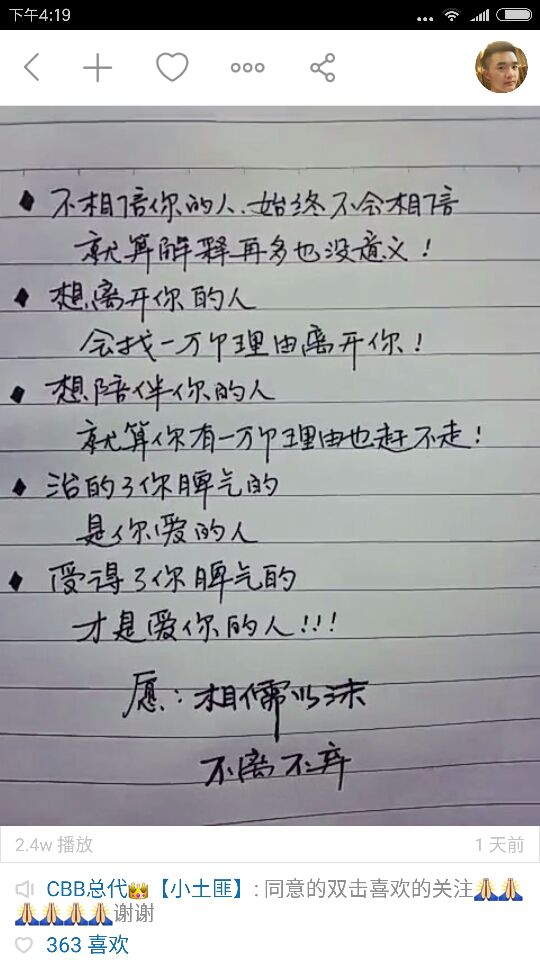 下午4:19
♦ 不相信你的人.始终不会相信
就算解释再多也没意义!
♦ 想离开你的人
会找一万个理由离开你!
♦ 想陪伴你的人
就算你有一万个理由也赶不走!
♦ 治的了你脾气的
是你爱的人
♦ 受得了你脾气的
才是爱你的人!!!
愿:相儒以沫
不离不弃
2.4w 播放
1 天前
CBB总代👑【小土匪】: 同意的双击喜欢的关注🙏🙏
🙏🙏🙏🙏谢谢
363 喜欢